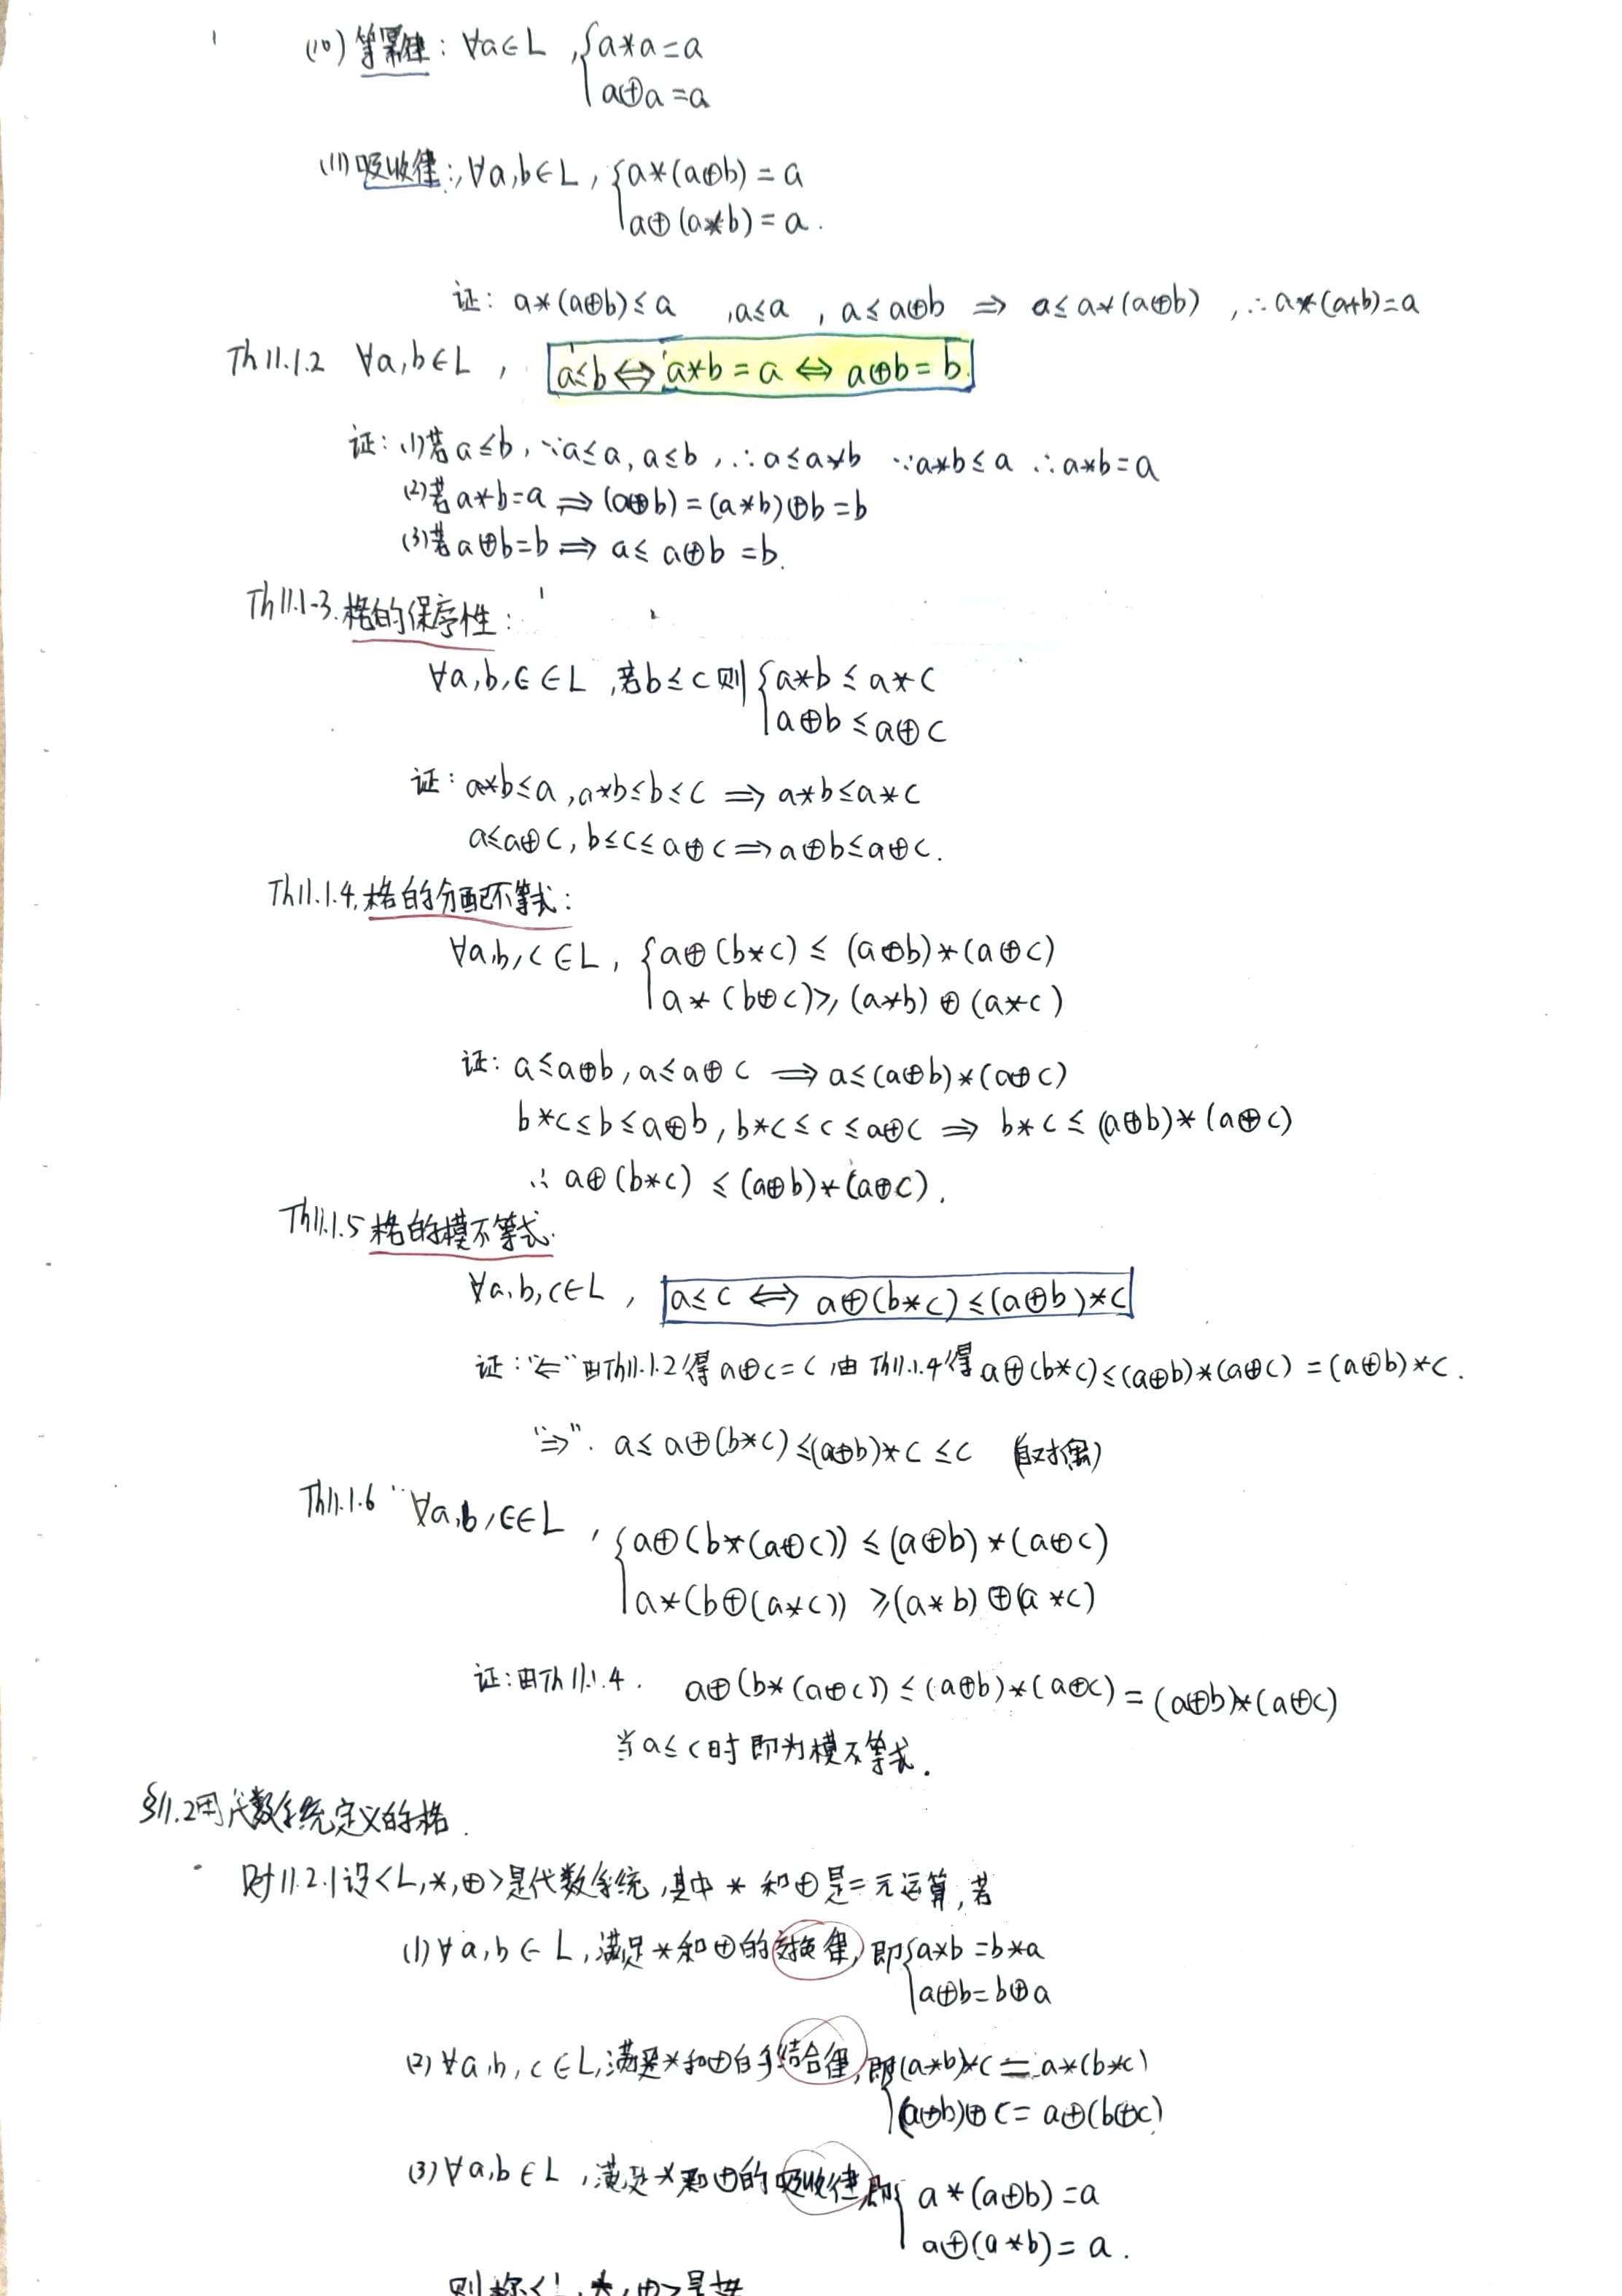 (10) 等幂律：∀a∈L，{a*a=a
a⊕a=a
(11) 吸收律：，∀a,b∈L，{a*(a⊕b)=a
a⊕(a*b)=a.
证：a*(a⊕b)≤a ，a≤a，a≤a⊕b ⇒ a≤a*(a⊕b)，∴a*(a+b)=a
Th11.1.2 ∀a,b∈L， a≤b⇔a*b=a⇔a⊕b=b.
证：(1)若a≤b，∵a≤a，a≤b，∴a≤a*b ∵a*b≤a ∴a*b=a
(2)若a*b=a⇒(a⊕b)=(a*b)⊕b=b
(3)若a⊕b=b⇒a≤a⊕b=b.
Th11.1-3.格的保序性：
∀a,b,c∈L，若b≤c则{a*b≤a*c
a⊕b≤a⊕c
证：a*b≤a，a*b≤b≤c⇒a*b≤a*c
a≤a⊕c，b≤c≤a⊕c⇒a⊕b≤a⊕c.
Th11.1.4.格的分配不等式：
∀a,b,c∈L，{a⊕(b*c)≤(a⊕b)*(a⊕c)
a*(b⊕c)≥(a*b)⊕(a*c)
证：a≤a⊕b，a≤a⊕c⇒a≤(a⊕b)*(a⊕c)
b*c≤b≤a⊕b，b*c≤c≤a⊕c⇒b*c≤(a⊕b)*(a⊕c)
∴a⊕(b*c)≤(a⊕b)*(a⊕c).
Th11.1.5格的模不等式.
∀a,b,c∈L， a≤c⇔a⊕(b*c)≤(a⊕b)*c
证：“⇐”由Th11.1.2得a⊕c=c，由Th11.1.4得a⊕(b*c)≤(a⊕b)*(a⊕c)=(a⊕b)*c.
“⇒”. a≤a⊕(b*c)≤(a⊕b)*c≤c (自对偶)
Th11.1.6 ∀a,b,c∈L，{a⊕(b*(a⊕c))≤(a⊕b)*(a⊕c)
a*(b⊕(a*c))≥(a*b)⊕(a*c)
证：由Th11.1.4. a⊕(b*(a⊕c))≤(a⊕b)*(a⊕c)=(a⊕b)*(a⊕c)
当a≤c时即为模不等式.
§11.2用代数系统定义的格.
Def11.2.1设<L,*,⊕>是代数系统，其中*和⊕是二元运算，若
(1)∀a,b∈L，满足*和⊕的交换律，即{a*b=b*a
a⊕b=b⊕a
(2)∀a,b,c∈L，满足*和⊕的结合律，即{(a*b)*c=a*(b*c)
(a⊕b)⊕c=a⊕(b⊕c)
(3)∀a,b∈L，满足*和⊕的吸收律，即{a*(a⊕b)=a
a⊕(a*b)=a.
则称<L,*,⊕>是格